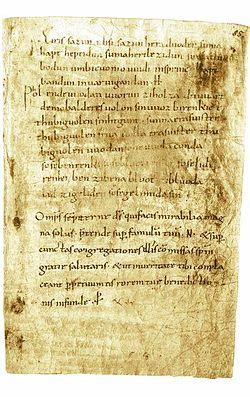 Eiris sazun idisi sazun hera duoder suma
hapt heptidun suma heri lezidun suma clu
bodun umbi cuonio uuidi insprinc hapt
bandun inuar uigandun ·H·
Phol ende uuodan uuorun zi holza du uuart
demo balderes uolon sin uuoz birenkict
thu biguolen sinhtgunt sunna era suister
thu biguolen friia uolla era suister thu
biguolen uuodan so he uuola conda
sose benrenki sose bluotrenki soselidi
renki ben zi bena bluot zi bluoda
lid zi geliden sose gelimida sin
Omps sempiterne ds qui facis mirabilia mag
na solus prtende sup famulu tuu N & sup
cunctas congregationes illi commissas spm
gratie salutaris & ut in ueritate tibi compla
ceant ppetuum eis rorem tue benedictio
nis infunde P